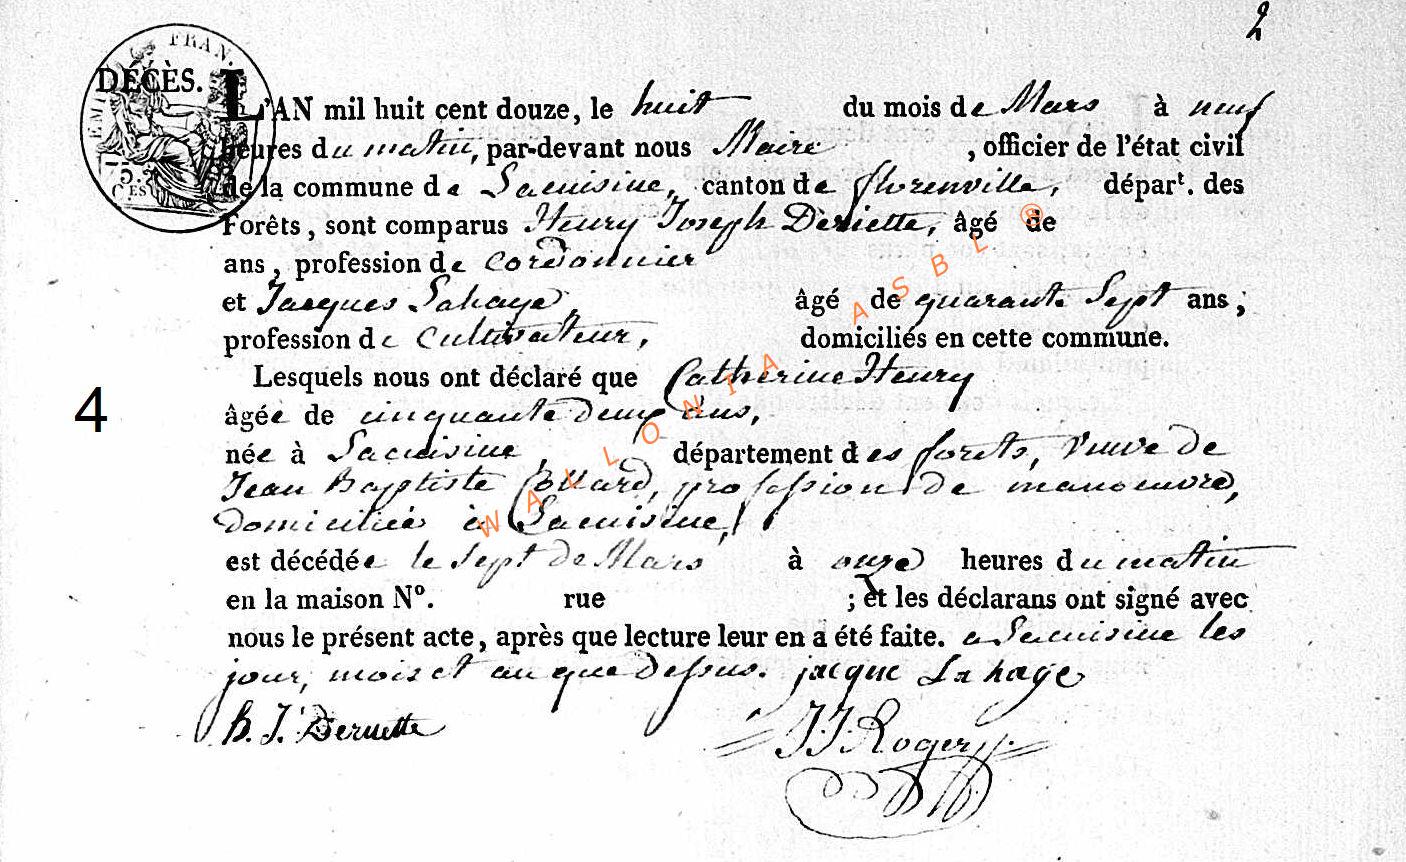 2
EMP. FRAN.
75.
CES
DÉCÈS. L'AN mil huit cent douze, le huit du mois de Mars à neuf
heures du matin, par-devant nous Maire , officier de l'état civil
de la commune de Lacuisine, canton de florenville, départ. des
Forêts, sont comparus Henry Joseph Deruette, âgé de
ans, profession de cordonnier
et Jacques Lahaye âgé de quarante Sept ans ;
profession de Cultivateur, domiciliés en cette commune.
Lesquels nous ont déclaré que Catherine Henry
4
âgée de cinquante Deux ans,
née à Lacuisine, département des forets, veuve de
Jean Baptiste Collard, profession de manoeuvre,
domiciliée à Lacuisine,
est décédée le sept de Mars à onze heures du matin
en la maison N°. rue ; et les déclarans ont signé avec
nous le présent acte, après que lecture leur en a été faite. a Lacuisine les
jour, mois et an que Dessus. jacque Lahaye
h. J. Deruette
J. J. Roger
WALLONIA ASBL ®